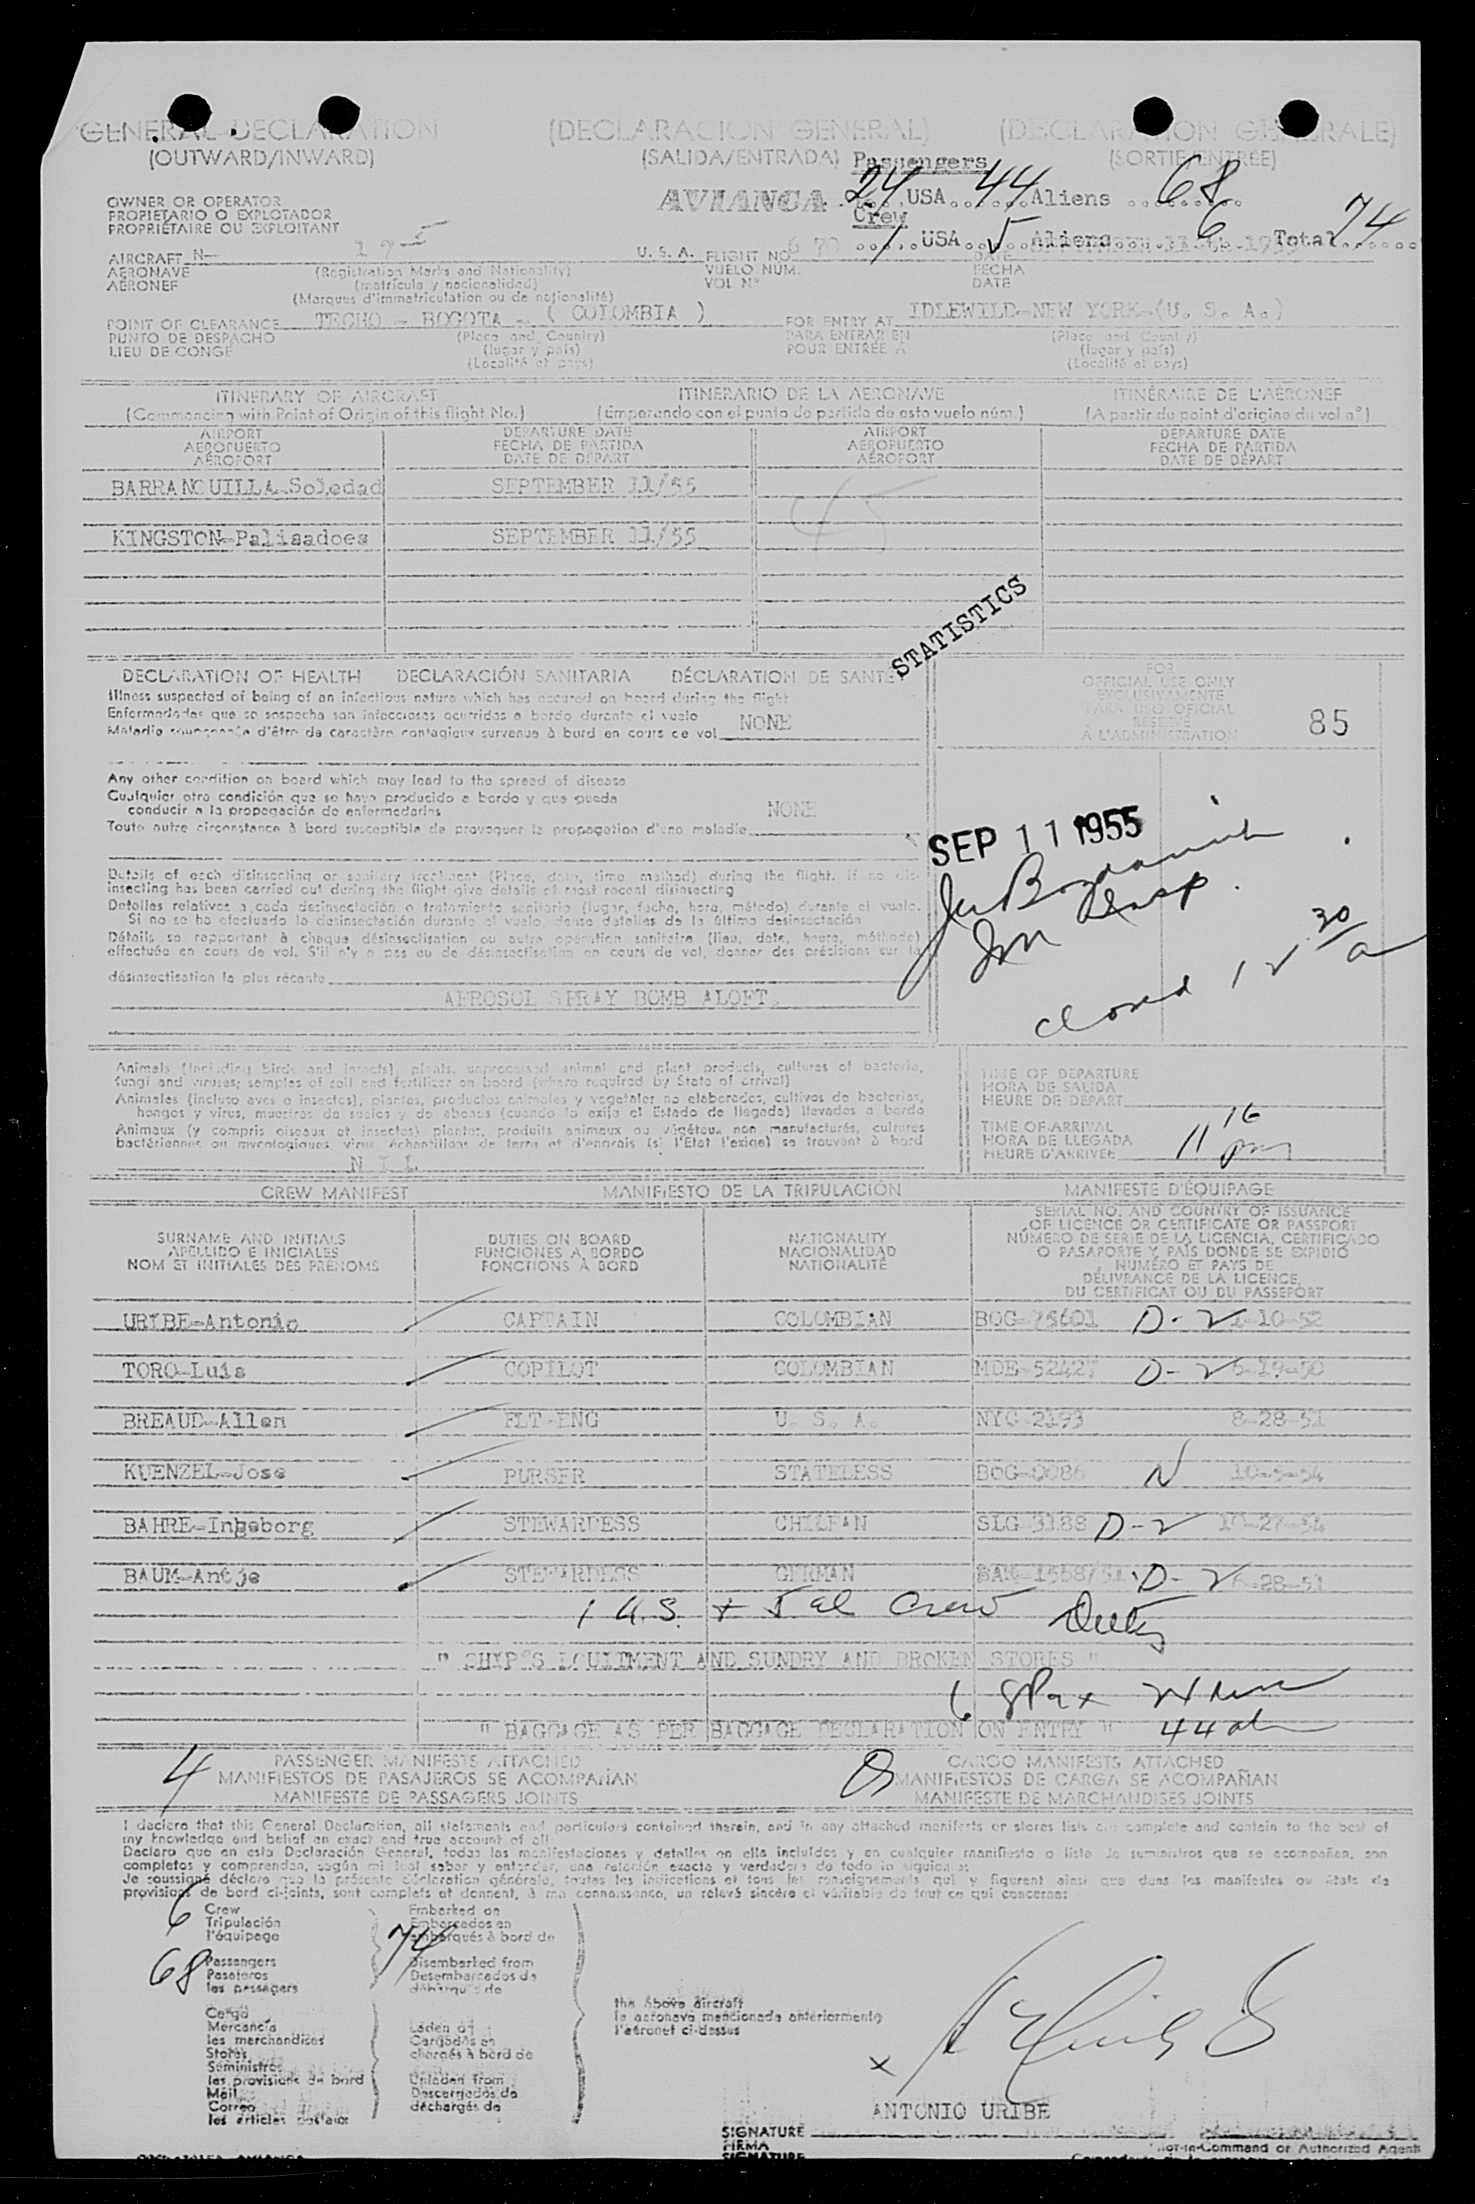 GENERAL DECLARATION (DECLARACION GENERAL) (DECLARATION GENERALE)
(OUTWARD/INWARD) (SALIDA/ENTRADA) (SORTIE/ENTRÉE)
Passengers
AVIANCA 24 USA 44 Aliens 68
Crew
1 USA 5 Aliens 6 Total 74
OWNER OR OPERATOR
PROPIETARIO O EXPLOTADOR
PROPRIÉTAIRE OU EXPLOITANT
AIRCRAFT N- U. S. A. FLIGHT NO. DATE
AERONAVE (Registration Marks and Nationality) VUELO NUM. FECHA
AÉRONEF (matrícula y nacionalidad) VOL Nº DATE
(Marques d'immatriculation ou de nationalité)
POINT OF CLEARANCE TECHO - BOGOTA - ( COLOMBIA ) FOR ENTRY AT IDLEWILD-NEW YORK-(U. S. A.)
PUNTO DE DESPACHO (Place and Country) PARA ENTRAR EN (Place and Country)
LIEU DE CONGÉ (lugar y país) POUR ENTRÉE A (lugar y país)
(Localité et pays) (Localité et pays)
ITINERARY OF AIRCRAFT ITINERARIO DE LA AERONAVE ITINÉRAIRE DE L'AÉRONEF
(Commencing with Point of Origin of this flight No.) (Empezando con el punto de partida de este vuelo núm.) (A partir du point d'origine du vol nº)
AIRPORT DEPARTURE DATE AIRPORT DEPARTURE DATE
AEROPUERTO FECHA DE PARTIDA AEROPUERTO FECHA DE PARTIDA
AÉROPORT DATE DE DÉPART AÉROPORT DATE DE DÉPART
BARRANQUILLA-Soledad SEPTEMBER 11/55
KINGSTON-Palisadoes SEPTEMBER 11/55
STATISTICS
DECLARATION OF HEALTH DECLARACIÓN SANITARIA DÉCLARATION DE SANTÉ
Illness suspected of being of an infectious nature which has occured on board during the flight
Enfermedades que se sospecha son infecciosas ocurridas a bordo durante el vuelo
Maladie soupçonnée d'être de caractère contagieux survenue à bord en cours de vol NONE
FOR
OFFICIAL USE ONLY
EXCLUSIVAMENTE
PARA USO OFICIAL
RESERVÉ
A L'ADMINISTRATION
85
Any other condition on board which may lead to the spread of disease
Cualquier otra condición que se haya producido a bordo y que pueda
conducir a la propagación de enfermedades NONE
Toute autre circonstance à bord susceptible de provoquer la propagation d'une maladie
SEP 11 1955
Details of each disinsecting or sanitary treatment (Place, date, time, method) during the flight. If no dis-
insecting has been carried out during the flight give details of most recent disinsecting
Detalles relativos a cada desinsectación o tratamiento sanitario (lugar, fecha, hora, método) durante el vuelo.
Si no se ha efectuado la desinsectación durante el vuelo, dense detalles de la última desinsectación
Détails se rapportant à chaque désinsectisation ou autre opération sanitaire (lieu, date, heure, méthode)
effectuée en cours de vol. S'il n'y a pas eu de désinsectisation en cours de vol, donner des précisions sur la
désinsectisation la plus récente
AEROSOL SPRAY BOMB ALOFT.
Insp.
Closed 12 30 a
Animals (including birds and insects), plants, unprocessed animal and plant products, cultures of bacteria,
fungi and viruses; samples of soil and fertilizer on board (where required by State of arrival)
Animales (incluso aves e insectos), plantas, productos animales y vegetales no elaborados, cultivos de bacterias,
hongos y virus, muestras de suelos y de abonos (cuando lo exija el Estado de llegada) llevados a bordo
Animaux (y compris oiseaux et insectes) plantes, produits animaux ou végétaux non manufacturés, cultures
bactériennes ou mycologiques, virus échantillons de terre et d'engrais (si l'Etat l'exige) se trouvant à bord
N I L
TIME OF DEPARTURE
HORA DE SALIDA
HEURE DE DÉPART
TIME OF ARRIVAL
HORA DE LLEGADA
HEURE D'ARRIVÉE 11 16 pm
CREW MANIFEST MANIFIESTO DE LA TRIPULACIÓN MANIFESTE D'ÉQUIPAGE
SURNAME AND INITIALS DUTIES ON BOARD NATIONALITY SERIAL NO. AND COUNTRY OF ISSUANCE
APELLIDO E INICIALES FUNCIONES A BORDO NACIONALIDAD OF LICENCE OR CERTIFICATE OR PASSPORT
NOM ET INITIALES DES PRÉNOMS FONCTIONS A BORD NATIONALITÉ NÚMERO DE SERIE DE LA LICENCIA, CERTIFICADO
O PASAPORTE Y PAÍS DONDE SE EXPIDIÓ
NUMÉRO ET PAYS DE
DÉLIVRANCE DE LA LICENCE,
DU CERTIFICAT OU DU PASSEPORT
URIBE-Antonio CAPTAIN COLOMBIAN BOG D-2
TORO-Luis COPILOT COLOMBIAN MDE D-2
BREAUD-Allen FLT-ENG U. S. A. NYC 2193 8-28-51
KUENZEL-Jose PURSER STATELESS BOG-0086 N
BAHRE-Ingeborg STEWARDESS CHILEAN SLG 3188 D-2 10-27-54
BAUM-Antje STEWARDESS GERMAN D-2
1 U.S. + 5 al Crew
" SHIP'S EQUIPMENT AND SUNDRY AND BROKEN STORES "
68 Pax
" BAGGAGE AS PER BAGGAGE DECLARATION ON ENTRY " 44 al
4 PASSENGER MANIFESTS ATTACHED CARGO MANIFESTS ATTACHED
MANIFIESTOS DE PASAJEROS SE ACOMPAÑAN MANIFIESTOS DE CARGA SE ACOMPAÑAN
MANIFESTE DE PASSAGERS JOINTS MANIFESTE DE MARCHANDISES JOINTS
I declare that this General Declaration, all statements and particulars contained therein, and in any attached manifests or stores lists are complete and contain to the best of
my knowledge and belief an exact and true account of all:
Declaro que en esta Declaración General, todas las manifestaciones y detalles en ella incluidos y en cualquier manifiesto o lista de suministros que se acompañen, son
completos y comprenden, según mi leal saber y entender, una relación exacta y verdadera de todo lo siguiente:
Je soussigné déclare que la présente déclaration générale, toutes les indications et tous les renseignements qui y figurent ainsi que dans les manifestes ou états de
provisions de bord ci-joints, sont complets et donnent, à ma connaissance, un relevé sincère et véritable de tout ce qui concerne:
6 Crew Embarked on
Tripulación Embarcados en
l'équipage embarqués à bord de
74
68 Passengers Disembarked from
Pasajeros Desembarcados de
les passagers débarqués de
the above aircraft
la aeronave mencionada anteriormente
l'aéronef ci-dessus
Cargo
Mercancía Laden on
les marchandises Cargados en
Stores chargés à bord de
Suministros
les provisions de bord Unladen from
Mail Descargados de
Correo déchargés de
les articles postaux
x
ANTONIO URIBE
SIGNATURE
FIRMA Pilot-in-Command or Authorized Agent
SIGNATURE